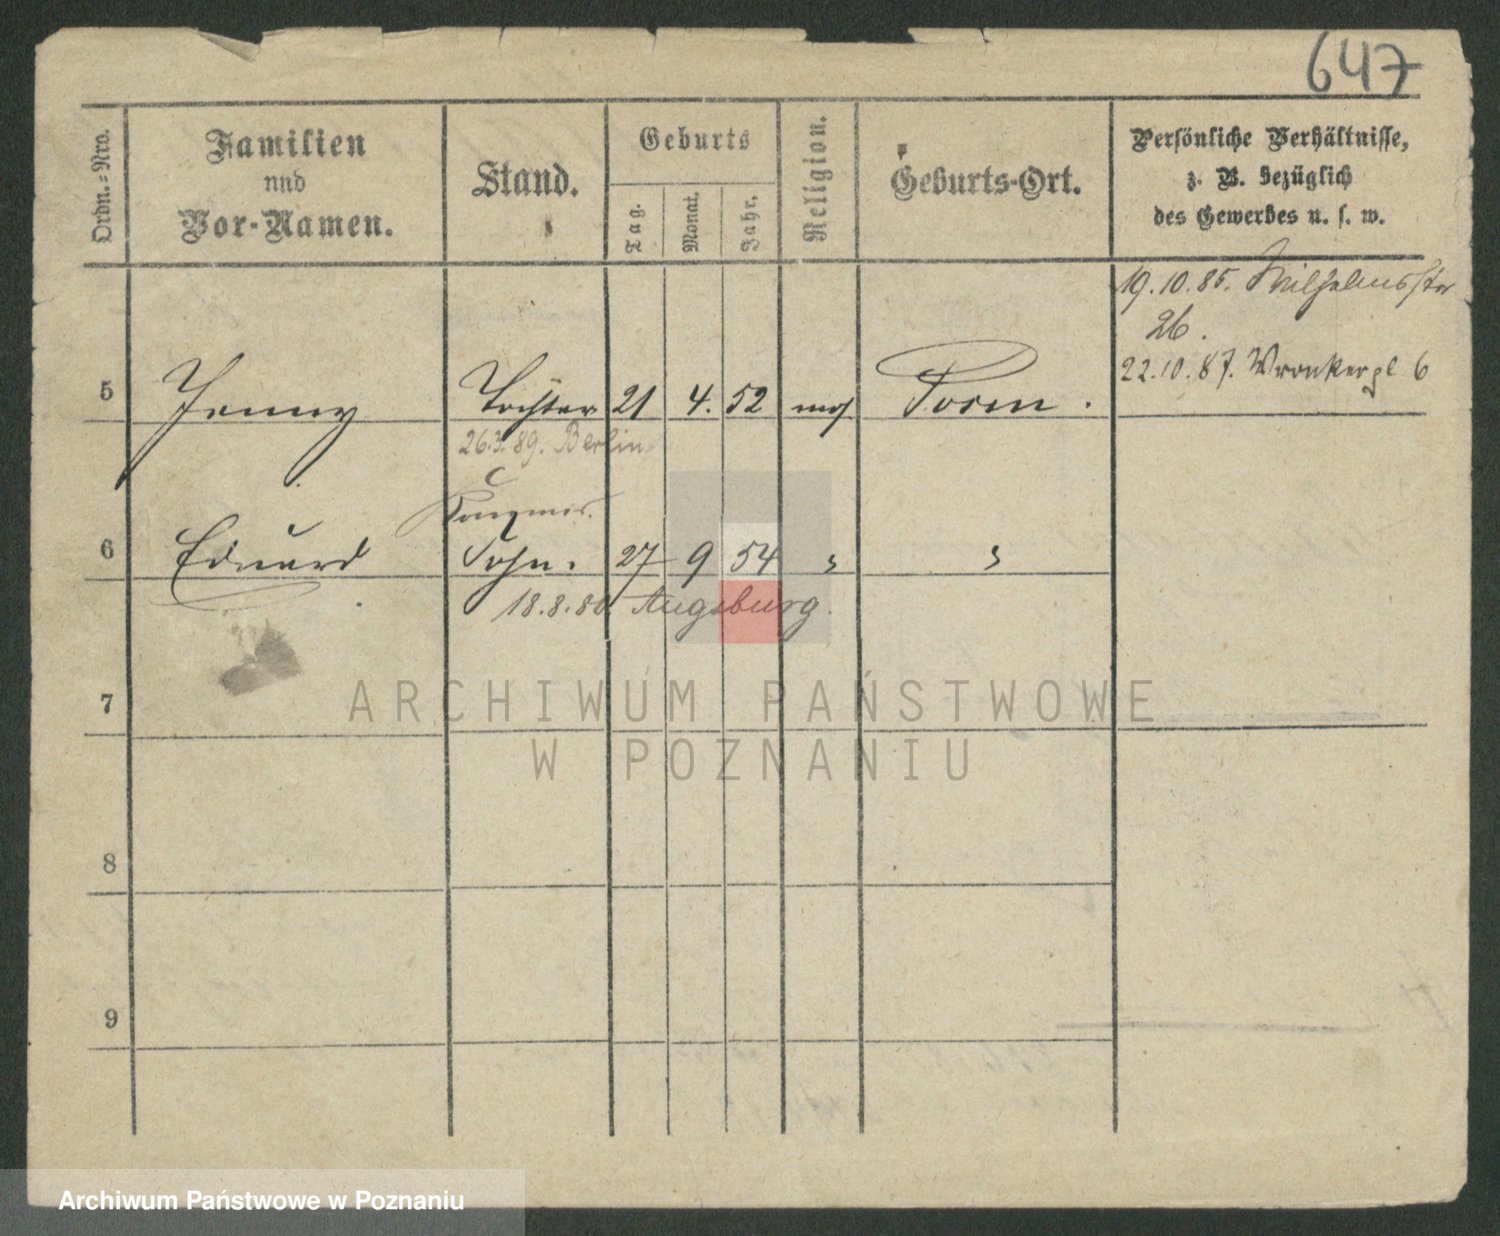 647
Ordn.-Nro.
Familien
und
Vor-Namen.
Stand.
Geburts
Tag.
Monat.
Jahr.
Religion.
Geburts-Ort.
Persönliche Verhältnisse,
z. B. bezüglich
des Gewerbes u. s. w.
19.10.85. Wilhelmsstr
26.
22.10.87. Wronkerpl 6
5 Jenny Tochter 21 4. 52 mos Posen.
26.3.89. Berlin
6 Eduard Sohn. 27 9 54 " "
Augsburg.
7
8
9
ARCHIWUM PAŃSTWOWE
W POZNANIU
Archiwum Państwowe w Poznaniu